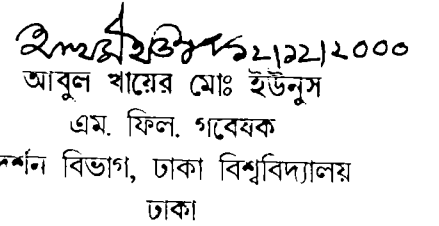 ১২/১২/২০০০
আবুল খায়ের মোঃ ইউনুস
এম. ফিল. গবেষক
দর্শন বিভাগ, ঢাকা বিশ্ববিদ্যালয়
ঢাকা